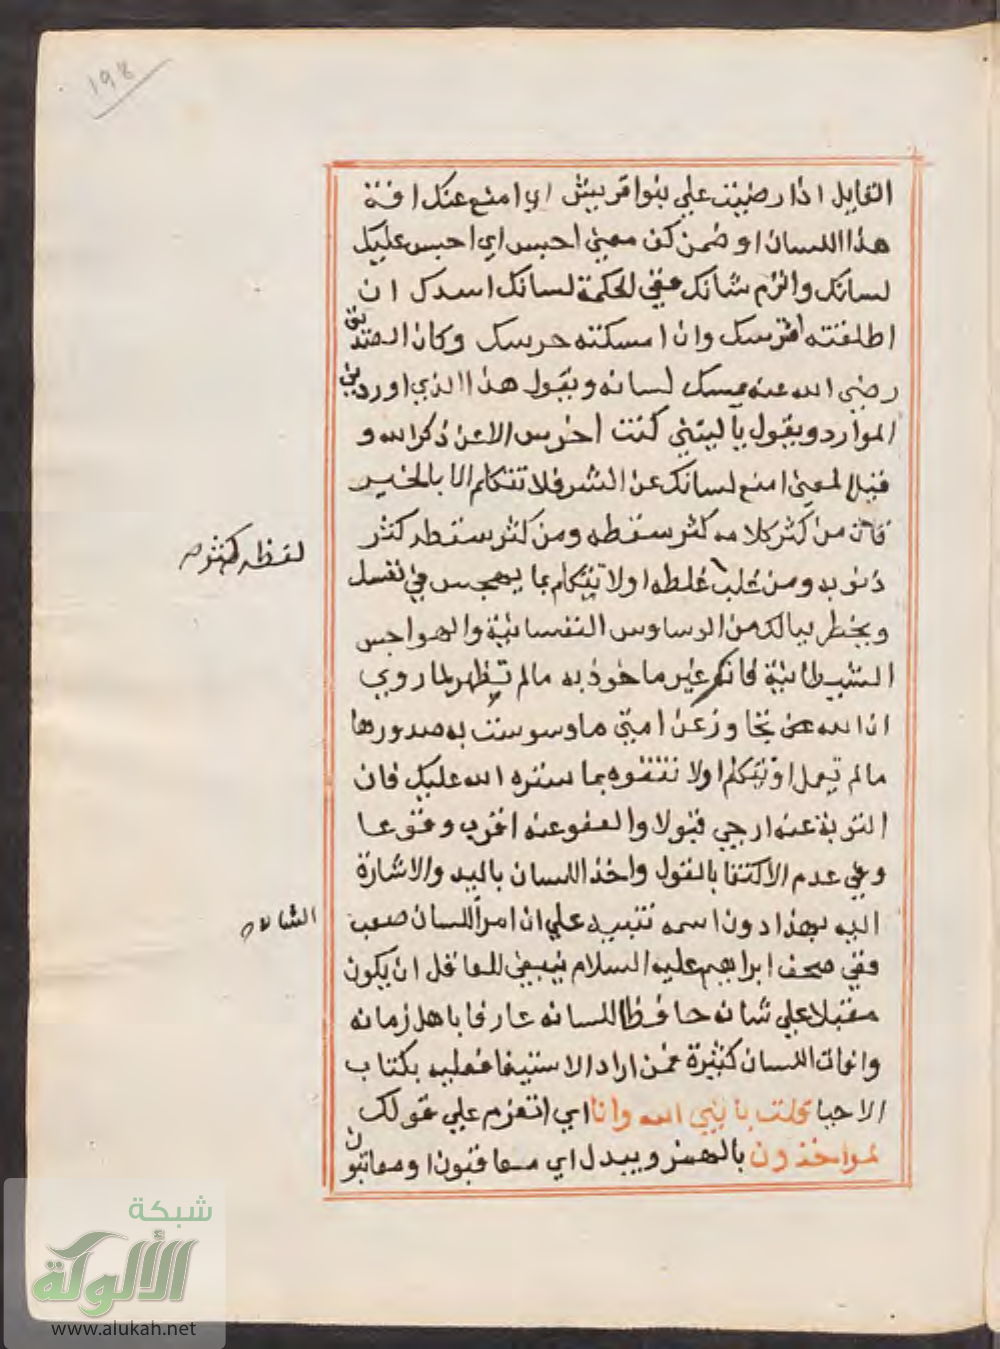 ١٩٨
القايل اذا رضيت علي بنوا قريش اي امنع عنك افة
هذا اللسان او ضمن كف معني احبس اي احبس عليك
لسانك والزم شانك ففي الحكمة لسانك اسدك ان
اطلقته افترسك وان امسكته حرسك وكان الصديق
رضي الله عنه يمسك لسانه ويقول هذا الذي اوردني
الموارد ويقول يا ليتني كنت اخرس الا عن ذكر الله و
قيل المعني امنع لسانك عن الشر فلا تتكلم الا بالخير
فان من كثر كلامه كثر سقطه ومن كثر سقطه كثر
ذنوبه ومن غلب غلطه او لا تتكلم بما يهجس في نفسك
ويخطر ببالك من الوساوس النفسانية والهواجس
الشيطانية فانك غير ماخوذ به مالم تظهر لما روي
ان الله عز تجاوز عن امتي ما وسوست به صدورها
مالم تعمل او تتكلم او لا تتفوه بما ستره الله عليك فان
التوبة عنه ارجي قبولا والعفو عنه اقرب وقوعا
وفي عدم الاكتفا بالقول واخذ اللسان باليد والاشارة
اليه بهذا دون اسمه تنبيه علي ان امر اللسان صعب
ففي صحف ابراهيم عليه السلام ينبغي للعاقل ان يكون
مقبلا علي شانه حافظا للسانه عارفا باهل زمانه
وافات اللسان كثيرة فمن اراد الاستيفا فعليه بكتاب
الاحيا قلت يا نبي الله وانا اي انعزم علي قولك
لمواخذون بالهمز ويبدل اي معاقبون او معاتبون
لفظه كثر
شبكة
الألوكة
www.alukah.net